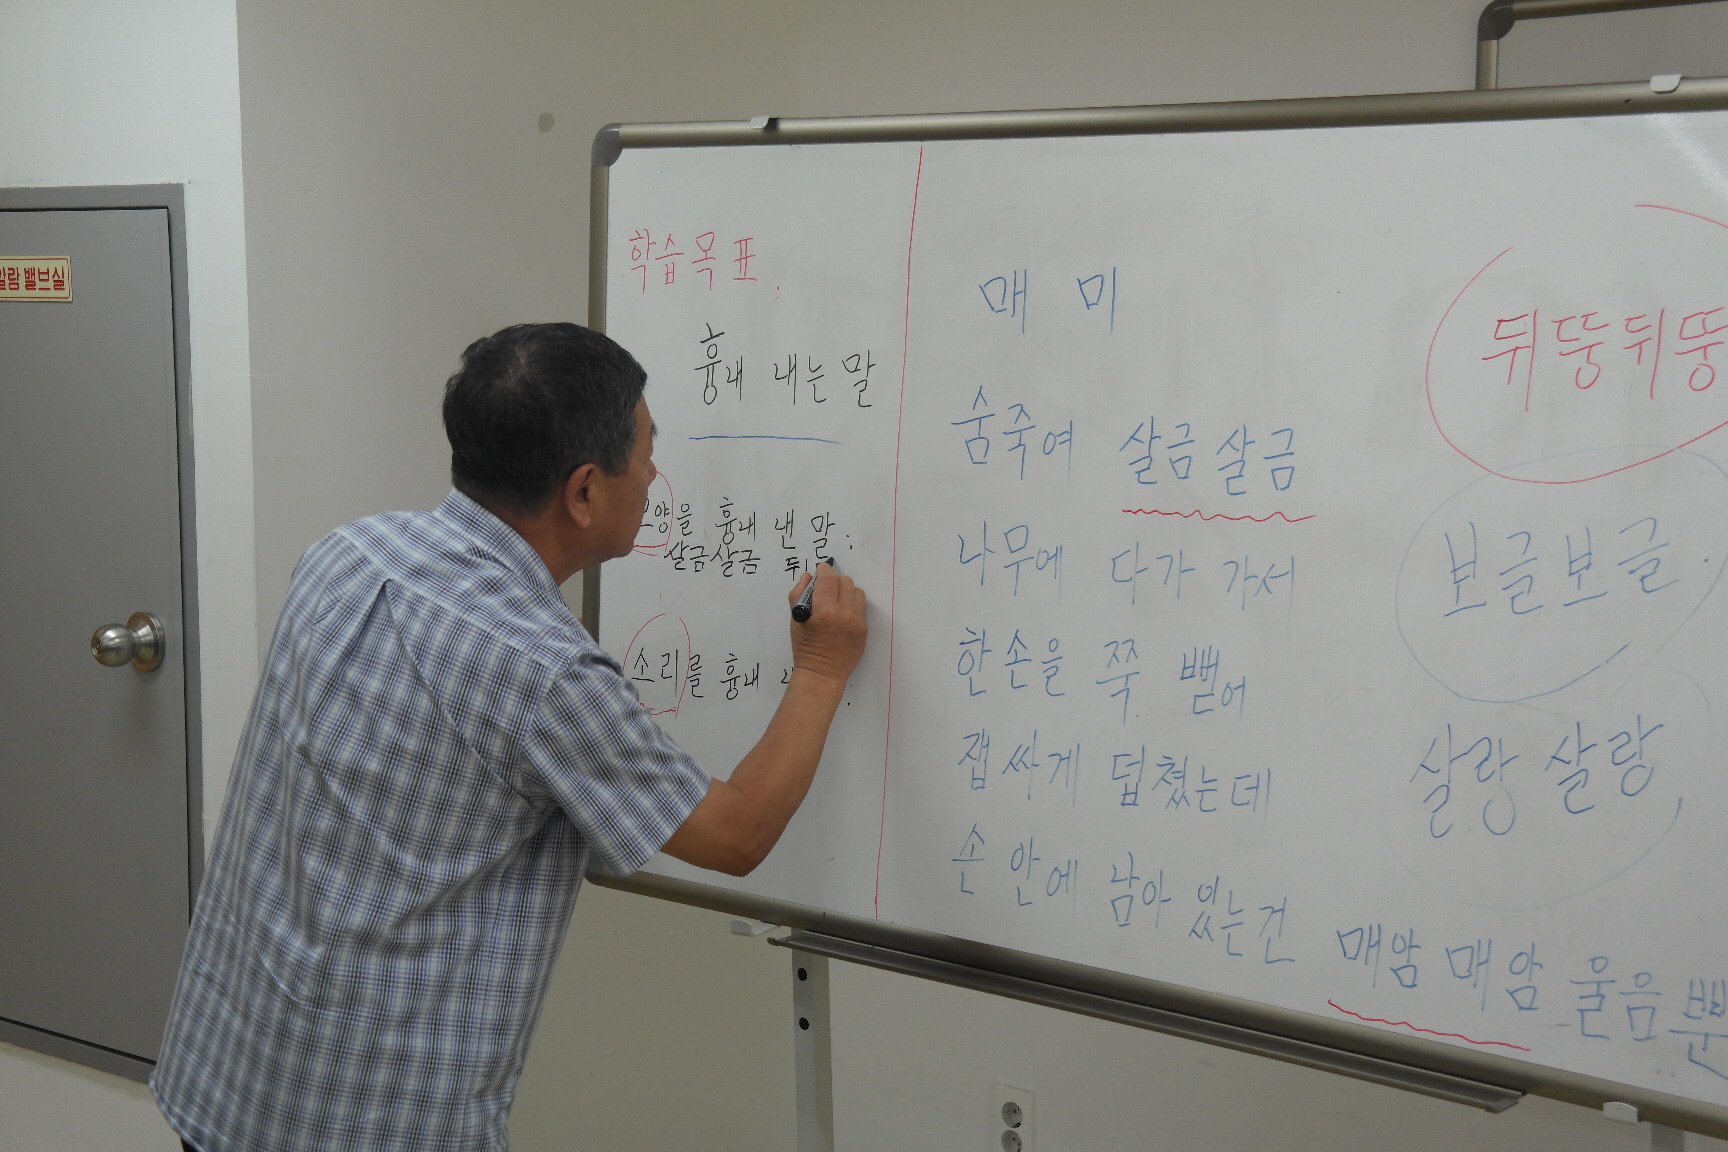 밸브실
학습목표.
흉내 내는 말
모양을 흉내 낸 말:
살금살금 뒤뚱
소리를 흉내
매미
숨죽여 살금살금
나무에 다가 가서
한 손을 쭉 뻗어
잽싸게 덥쳤는데
손 안에 남아 있는건
매암 매암 울음뿐
뒤뚱뒤뚱
보글보글
살랑 살랑